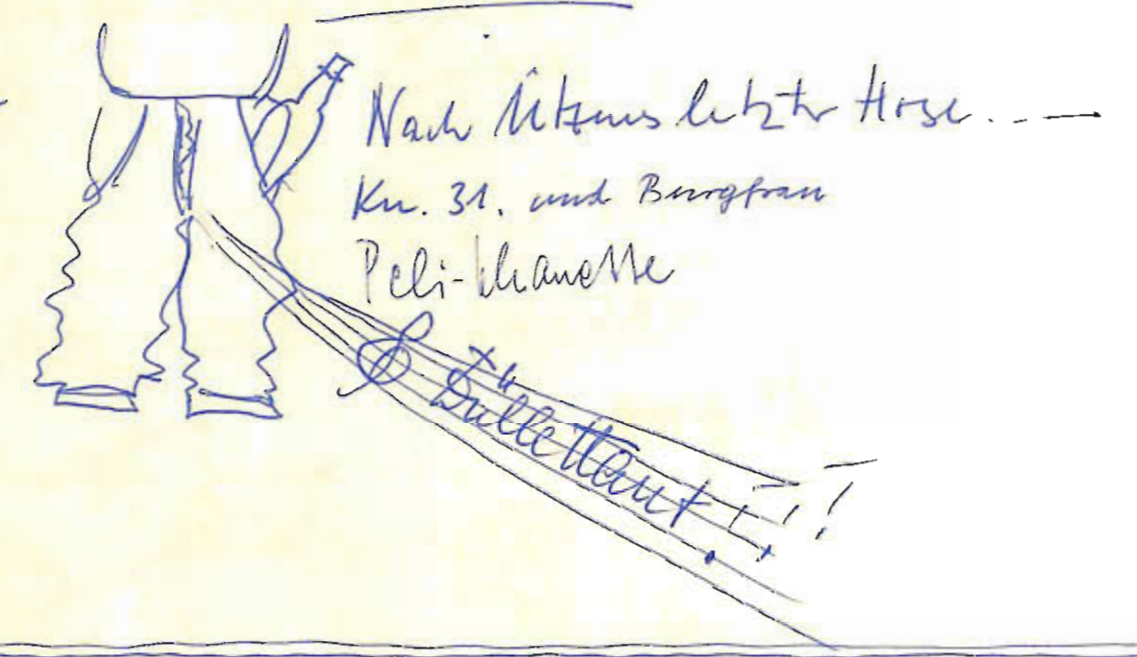 Nach Ützens letzter Hose...
Kn. 31. und Burgfrau
Peli-khanette
Düllettant !